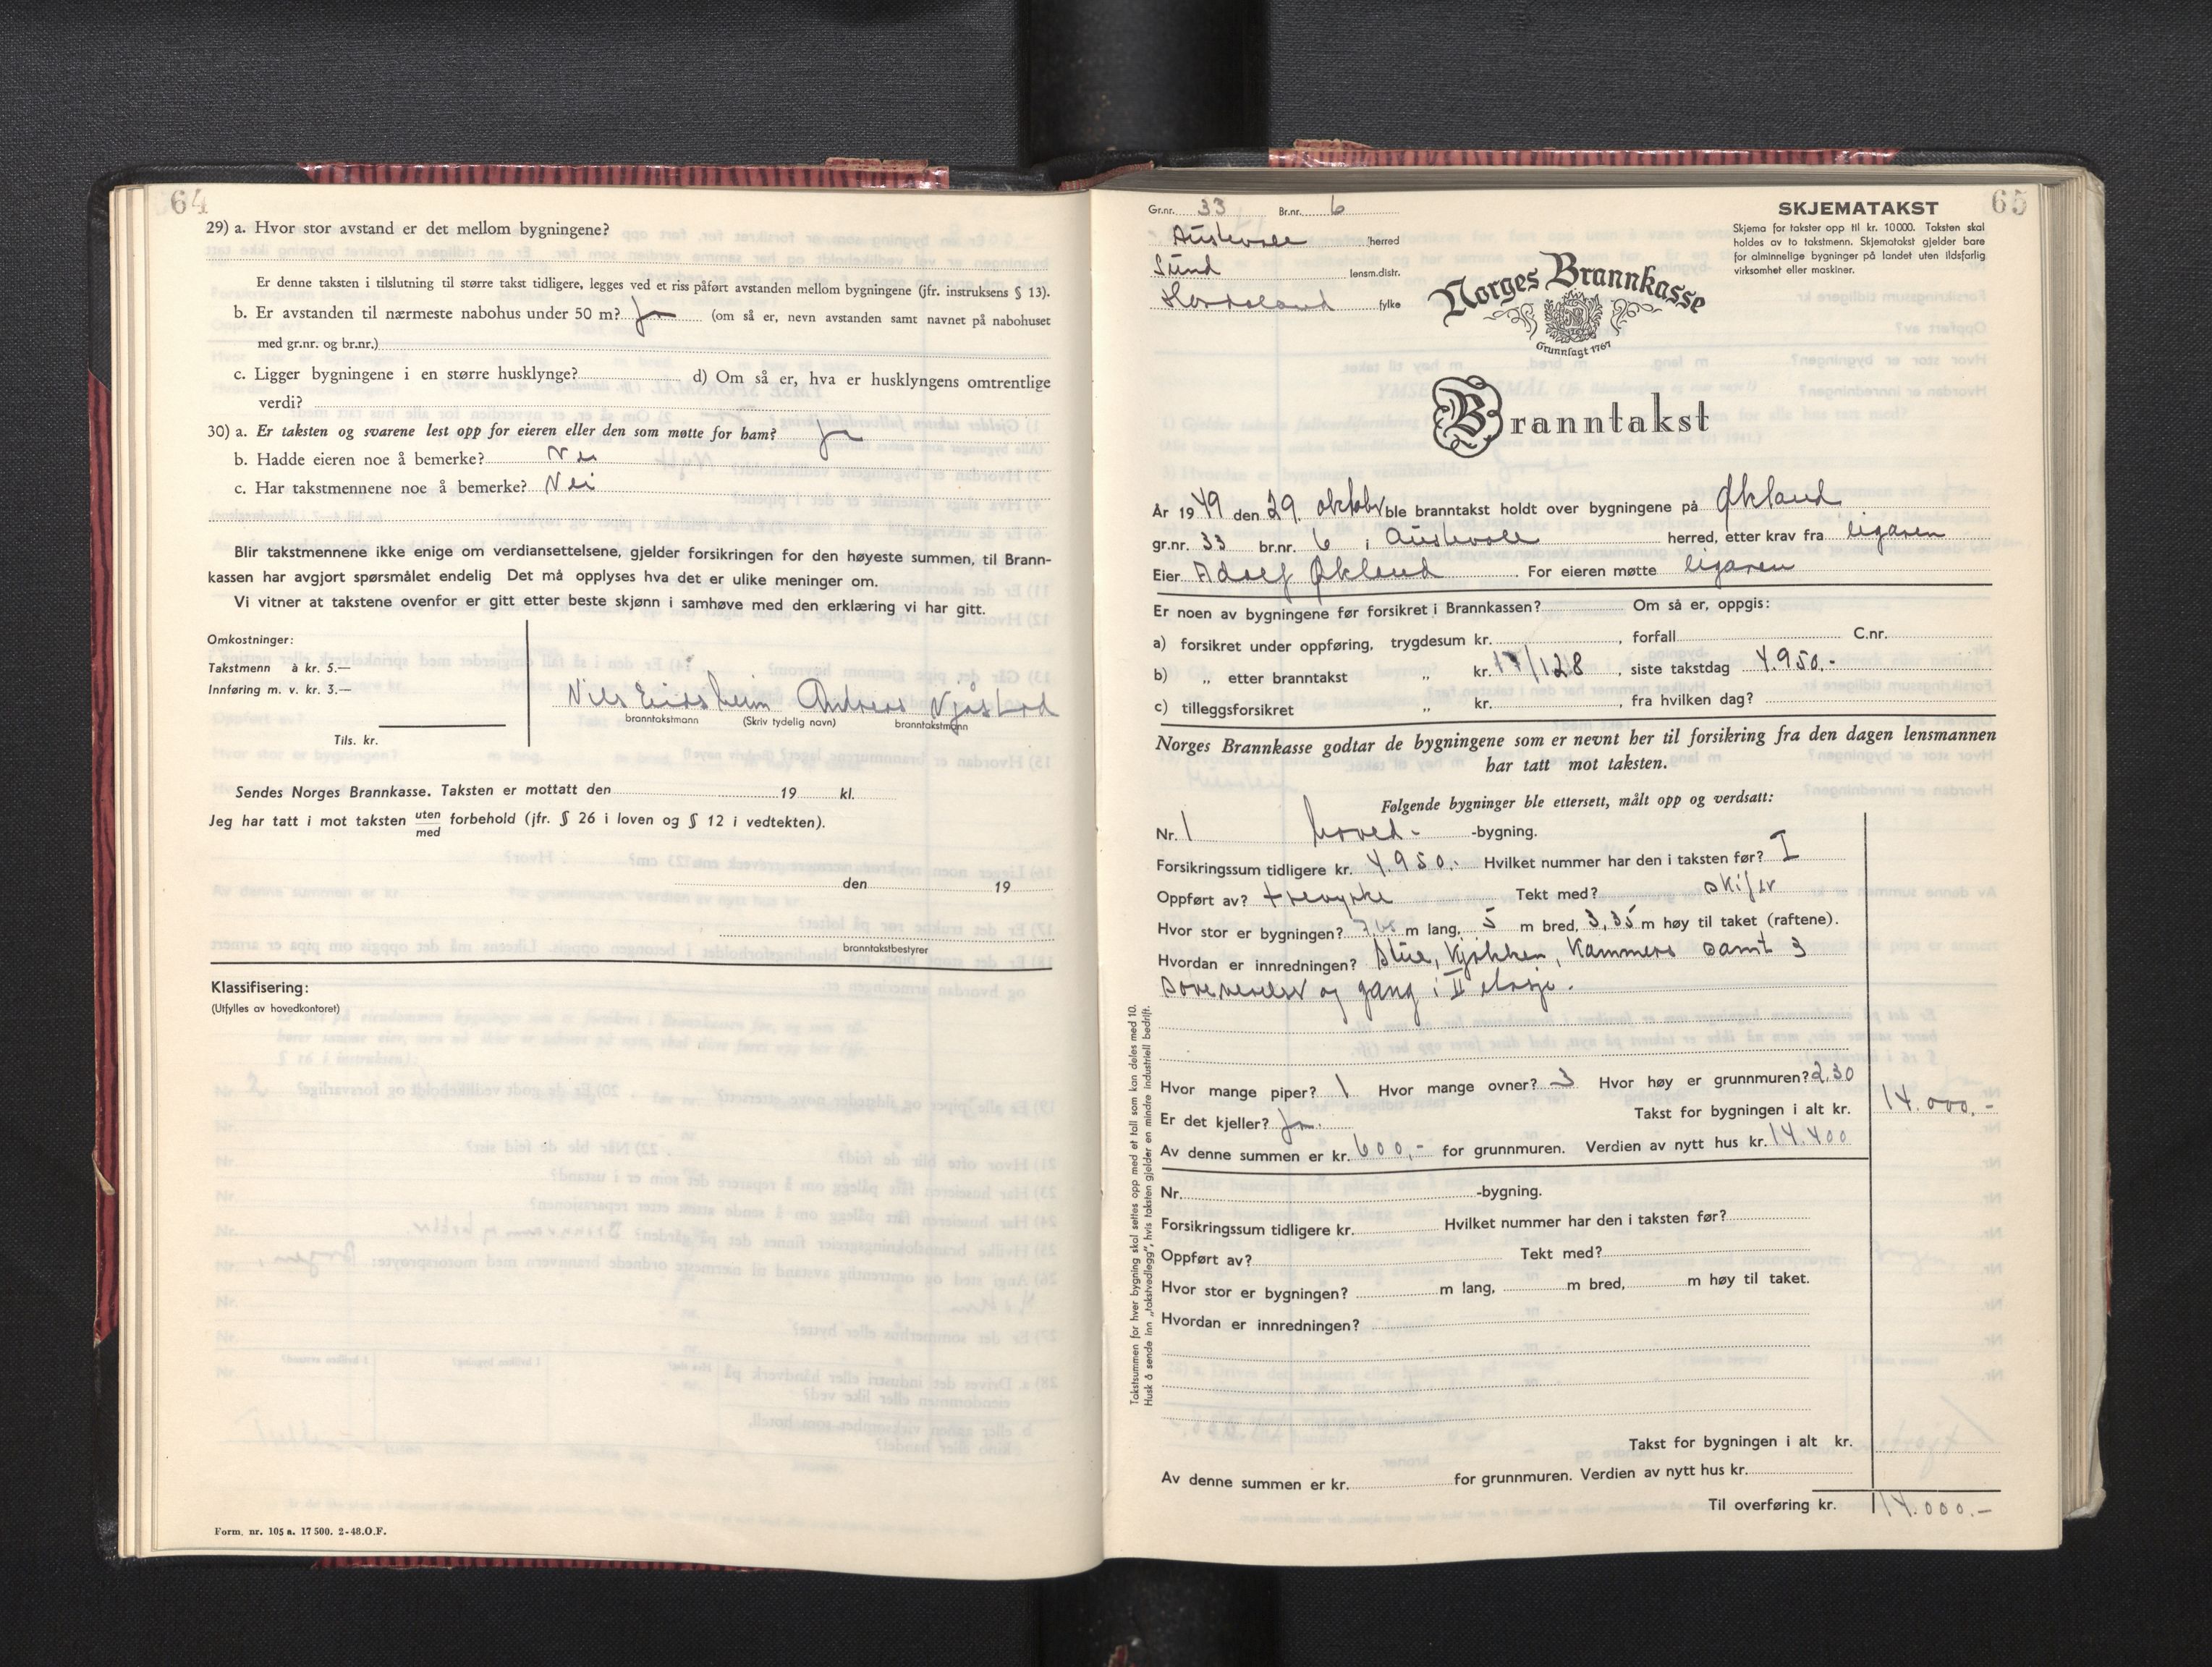 64
29) a. Hvor stor avstand er det mellom bygningene?
Er denne taksten i tilslutning til større takst tidligere, legges ved et riss påført avstanden mellom bygningene (jfr. instruksens § 13).
b. Er avstanden til nærmeste nabohus under 50 m? Ja (om så er, nevn avstanden samt navnet på nabohuset
med gr.nr. og br.nr.)
c. Ligger bygningene i en større husklynge? d) Om så er, hva er husklyngens omtrentlige
verdi?
30) a. Er taksten og svarene lest opp for eieren eller den som møtte for ham? Ja
b. Hadde eieren noe å bemerke? Nei
c. Har takstmennene noe å bemerke? Nei
Blir takstmennene ikke enige om verdiansettelsene, gjelder forsikringen for den høyeste summen, til Brann-
kassen har avgjort spørsmålet endelig Det må opplyses hva det er ulike meninger om.
Vi vitner at takstene ovenfor er gitt etter beste skjønn i samhøve med den erklæring vi har gitt.
Omkostninger:
Takstmenn à kr. 5.—
Innføring m. v. kr. 3.—
Tils. kr.
Nils Eidsheim Andreas Njåstad
branntakstmann (Skriv tydelig navn) branntakstmann
Sendes Norges Brannkasse. Taksten er mottatt den 19 kl.
Jeg har tatt i mot taksten uten med forbehold (jfr. § 26 i loven og § 12 i vedtekten).
den 19
branntakstbestyrer
Klassifisering:
(Utfylles av hovedkontoret)
Form. nr. 105 a. 17 500. 2-48.O.F.
65
Gr.nr. 33 Br.nr. 6
Austevoll herred
Sund lensm.distr.
Hordaland fylke
SKJEMATAKST
Skjema for takster opp til kr. 10 000. Taksten skal
holdes av to takstmenn. Skjematakst gjelder bare
for alminnelige bygninger på landet uten ildsfarlig
virksomhet eller maskiner.
Norges Brannkasse
Grunnlagt 1767
Branntakst
År 1949 den 29. oktober ble branntakst holdt over bygningene på Økland
gr.nr. 33 br.nr. 6 i Austevoll herred, etter krav fra eigaren
Eier Adolf Økland For eieren møtte eigaren
Er noen av bygningene før forsikret i Brannkassen? Om så er, oppgis:
a) forsikret under oppføring, trygdesum kr. , forfall C.nr.
b) „ etter branntakst „ kr. 17/128 , siste takstdag 4.950.-
c) tilleggsforsikret „ kr. , fra hvilken dag?
Norges Brannkasse godtar de bygningene som er nevnt her til forsikring fra den dagen lensmannen
har tatt mot taksten.
Følgende bygninger ble ettersett, målt opp og verdsatt:
Nr. 1 hoved- -bygning.
Forsikringssum tidligere kr. 4.950.- Hvilket nummer har den i taksten før? I
Oppført av? trevyrke Tekt med? skifer
Hvor stor er bygningen? m lang, 5 m bred, 3,35 m høy til taket (raftene).
Hvordan er innredningen? Stue, Kjøkken, Kammers samt 3
soveverelser og gang i II etasje.
Hvor mange piper? 1 Hvor mange ovner? 3 Hvor høy er grunnmuren? 2,30
Er det kjeller? Ja. Takst for bygningen i alt kr. 14.000.-
Av denne summen er kr. 600,- for grunnmuren. Verdien av nytt hus kr. 14.400
Nr. -bygning.
Forsikringssum tidligere kr. Hvilket nummer har den i taksten før?
Oppført av? Tekt med?
Hvor stor er bygningen? m lang, m bred, m høy til taket.
Hvordan er innredningen?
Takst for bygningen i alt kr.
Av denne summen er kr. for grunnmuren. Verdien av nytt hus kr.
Til overføring kr. 14.000.-
Takstsummen for hver bygning skal settes opp med et tall som kan deles med 10.
Husk å sende inn „takstvedlegg", hvis taksten gjelder en mindre industriell bedrift.